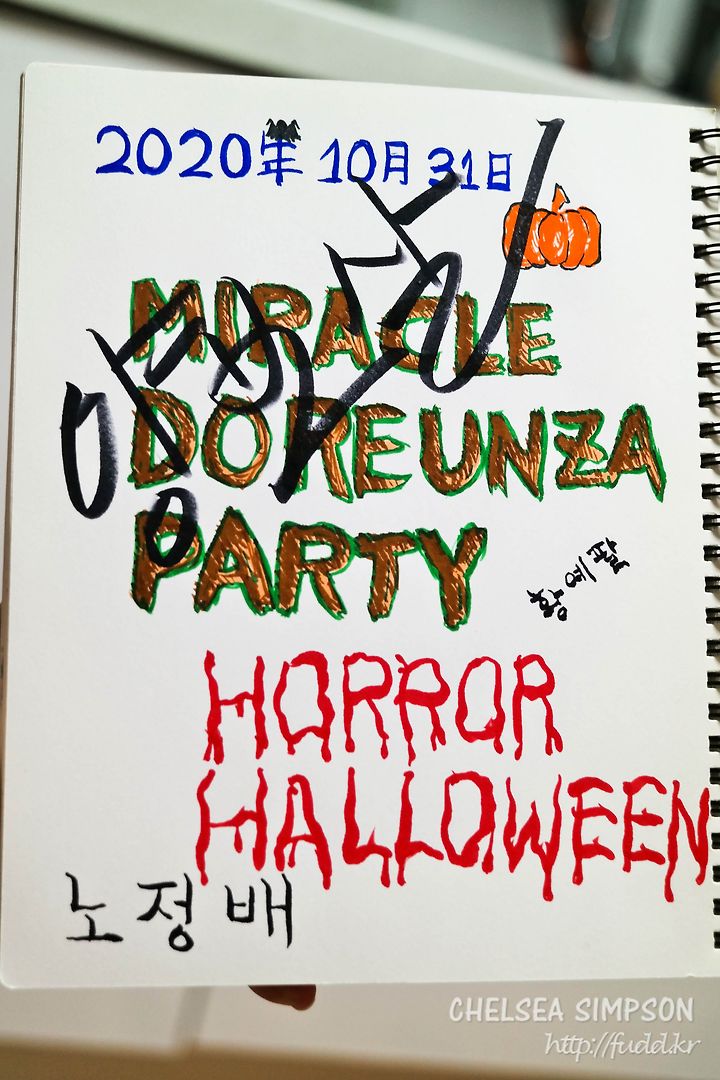 2020年 10月 31日
MIRACLE
DOREUNZA
PARTY
황예랑
HORROR
HALLOWEEN
노정배
CHELSEA SIMPSON
http://fudd.kr